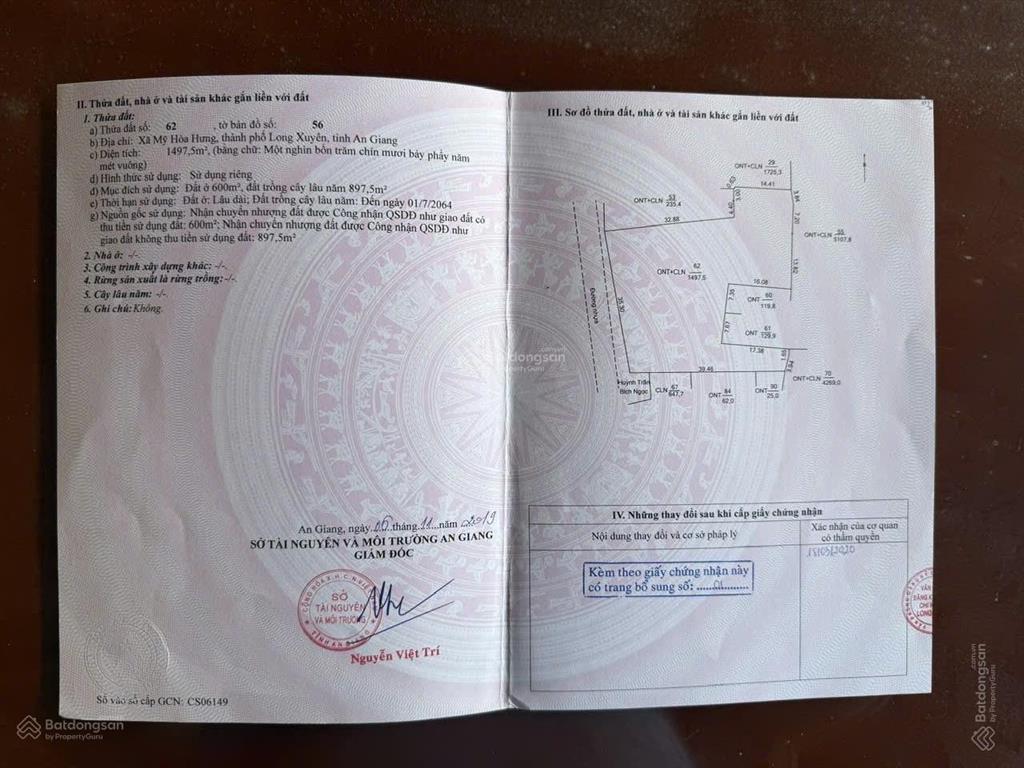 II. Thửa đất, nhà ở và tài sản khác gắn liền với đất
1. Thửa đất:
a) Thửa đất số: 62 , tờ bản đồ số: 56
b) Địa chỉ: Xã Mỹ Hòa Hưng, thành phố Long Xuyên, tỉnh An Giang
c) Diện tích: 1497,5m², (bằng chữ: Một nghìn bốn trăm chín mươi bảy phẩy năm
mét vuông)
d) Hình thức sử dụng: Sử dụng riêng
đ) Mục đích sử dụng: Đất ở 600m², đất trồng cây lâu năm 897,5m²
e) Thời hạn sử dụng: Đất ở: Lâu dài; Đất trồng cây lâu năm: Đến ngày 01/7/2064
g) Nguồn gốc sử dụng: Nhận chuyển nhượng đất được Công nhận QSDĐ như giao đất có
thu tiền sử dụng đất: 600m²; Nhận chuyển nhượng đất được Công nhận QSDĐ như
giao đất không thu tiền sử dụng đất: 897,5m²
2. Nhà ở: -/-
3. Công trình xây dựng khác: -/-.
4. Rừng sản xuất là rừng trồng:-/-.
5. Cây lâu năm: -/-.
6. Ghi chú: Không.
An Giang, ngày 06 tháng 11 năm 2019
SỞ TÀI NGUYÊN VÀ MÔI TRƯỜNG AN GIANG
GIÁM ĐỐC
CỘNG HÒA X.H.C.N VIỆT
SỞ
TÀI NGUYÊN
VÀ MÔI TRƯỜNG
TỈNH AN GIANG
Nguyễn Việt Trí
Số vào sổ cấp GCN: CS06149
III. Sơ đồ thửa đất, nhà ở và tài sản khác gắn liền với đất
ONT+CLN 29
1725,3
0.63
3.00
14.41
3.86
ONT+CLN 53
235,4
4.40
32.88
7.20
ONT+CLN 55
5107,8
ONT+CLN 62
1497,5
13.82
16.08
7.35
ONT 60
119,8
Đường nhựa
35.50
7.67
ONT 61
129,9
17.38
1.65
3.94
39.46
ONT+CLN 70
4269,0
Huỳnh Trần
Bích Ngọc
CLN 67
647,7
ONT 84
62,0
ONT 90
25,0
IV. Những thay đổi sau khi cấp giấy chứng nhận
Nội dung thay đổi và cơ sở pháp lý
Xác nhận của cơ quan
có thẩm quyền
18/03/2020
Kèm theo giấy chứng nhận này
có trang bổ sung số: 01
VĂN
ĐĂNG K
CHI N
LONG
Batdongsan
by PropertyGuru
Batdongsan.com.vn
by PropertyGuru
Batdongsan.com.vn
by PropertyGuru